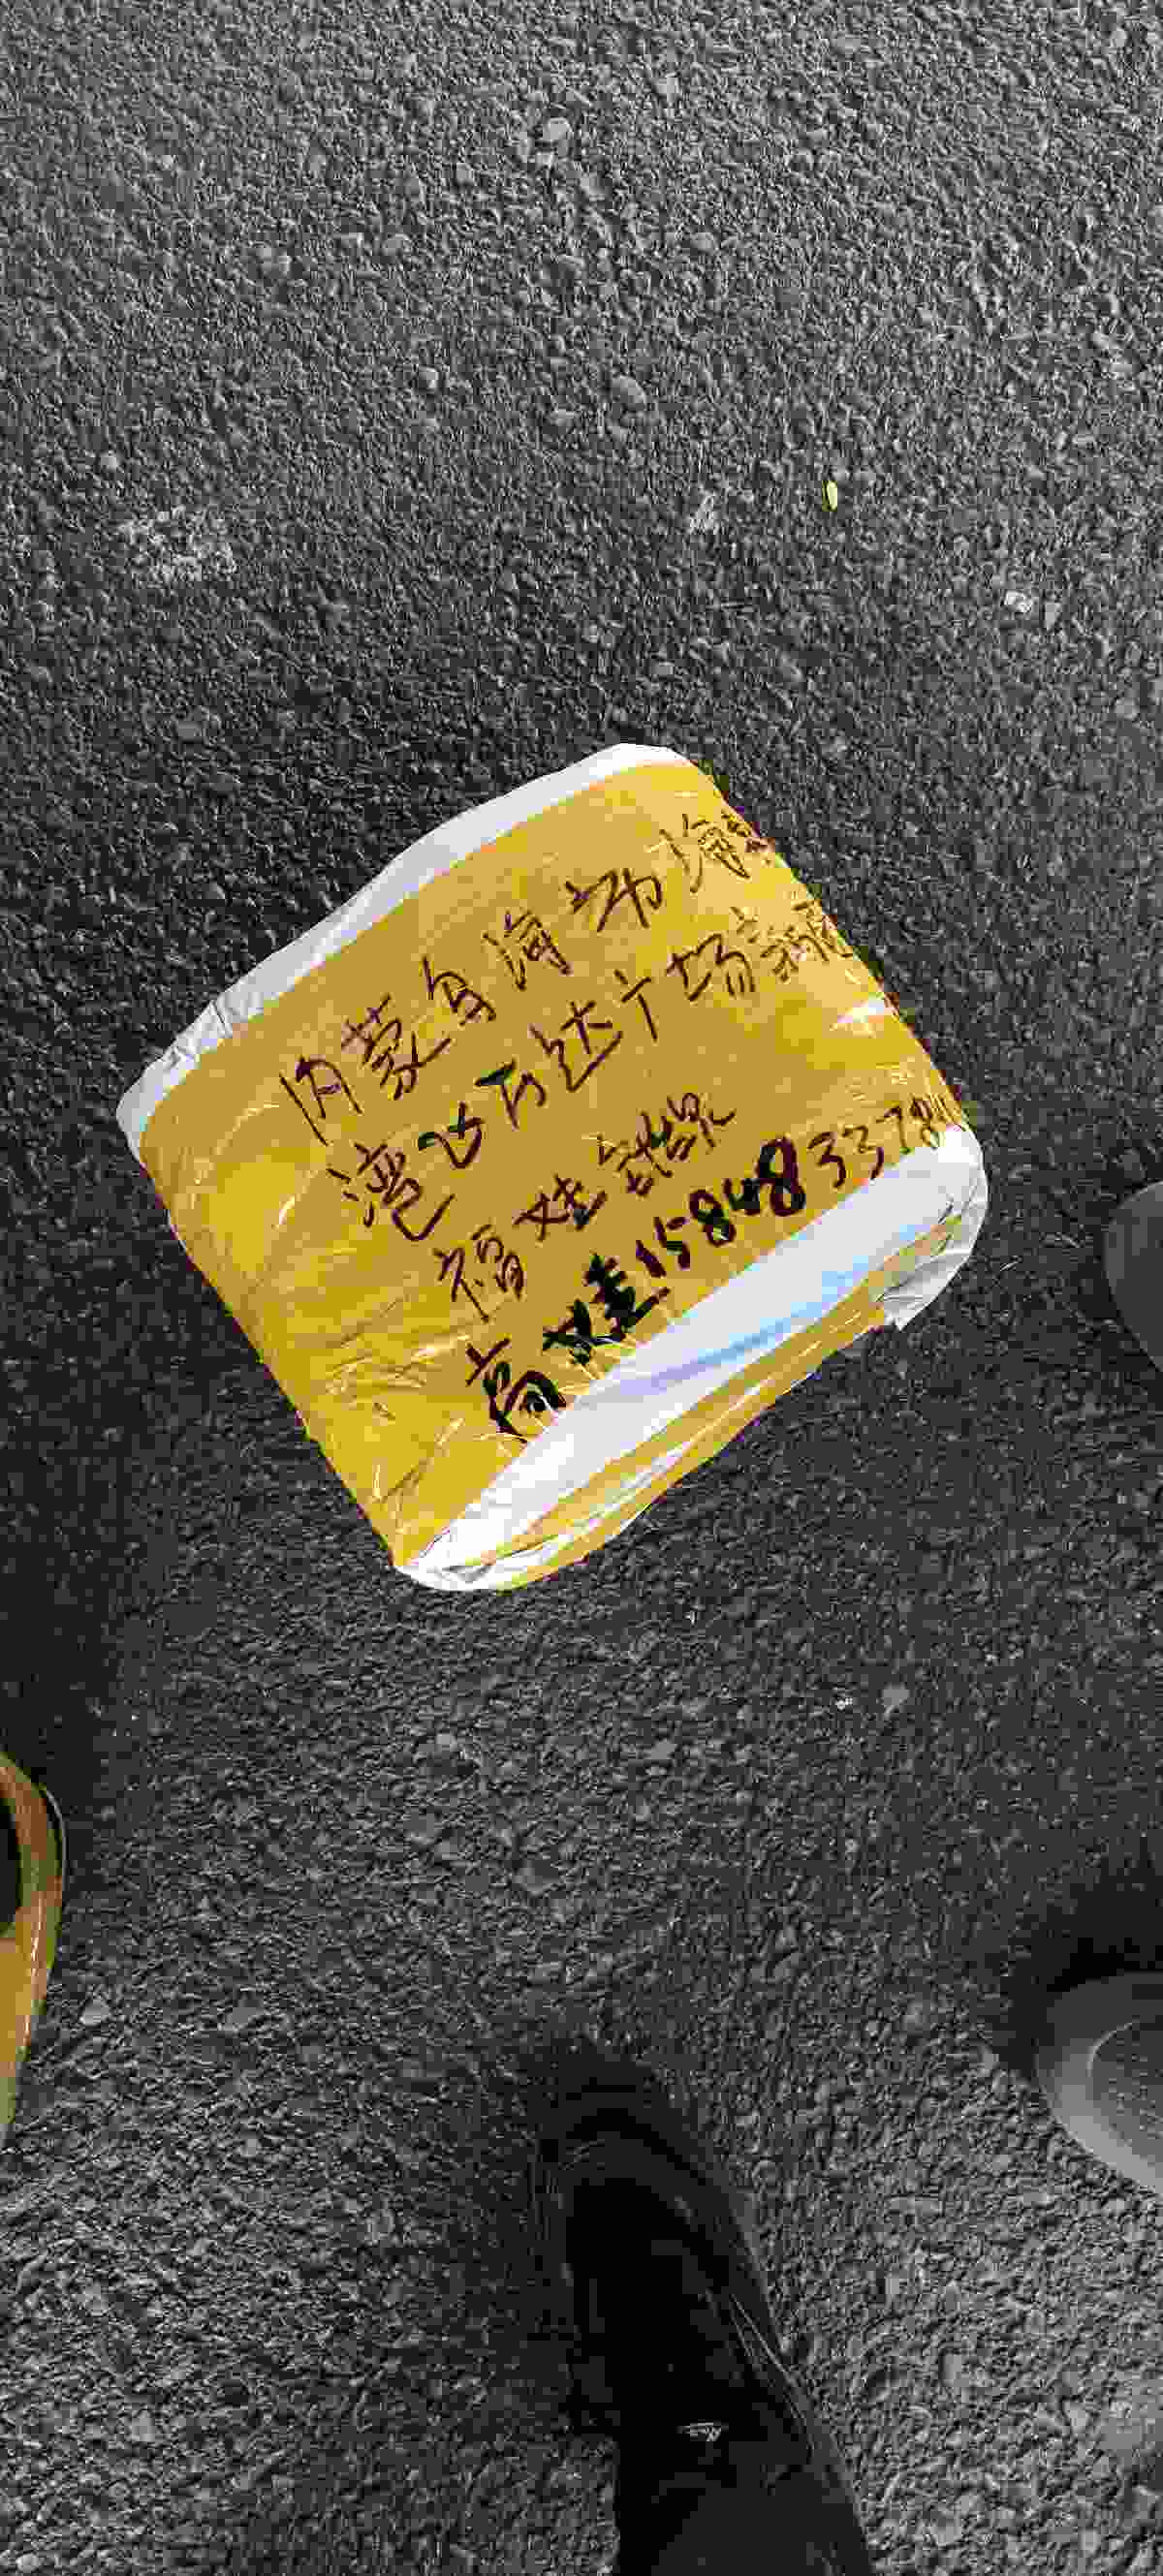 内蒙乌海市海
湾区万达广场
福娃
高娃15848337811